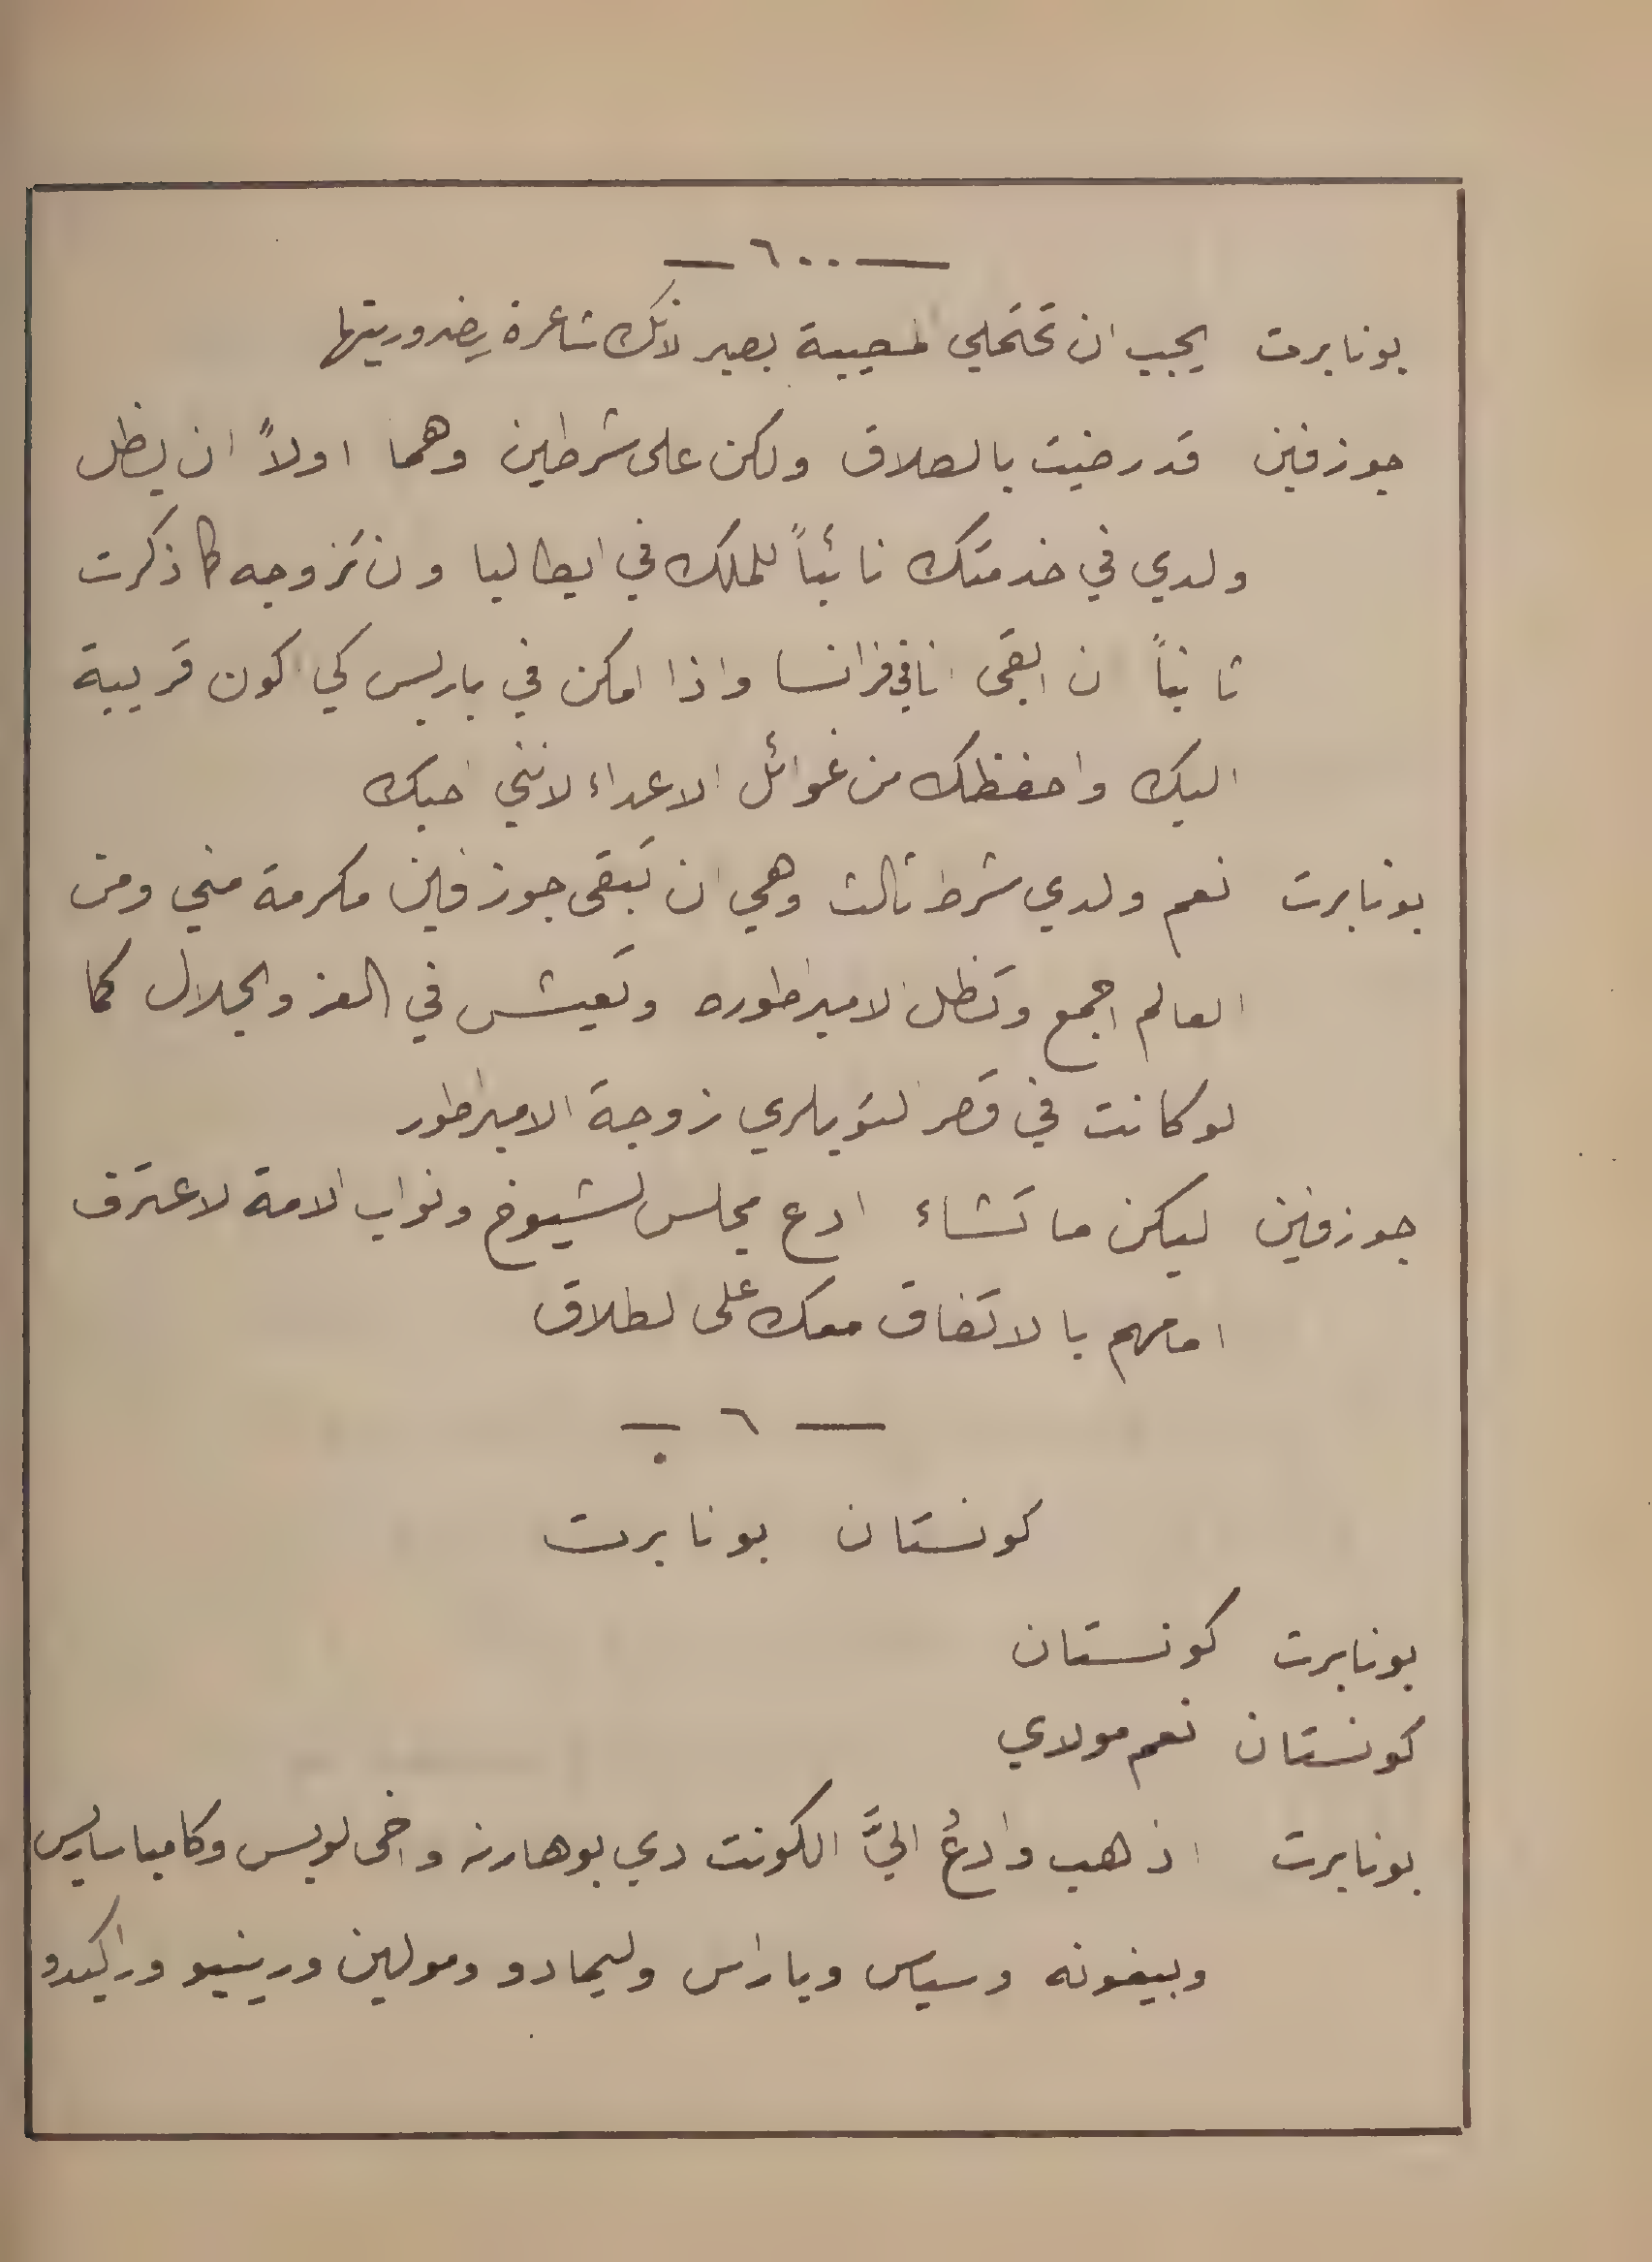 — ٦٠٠ —
بونابرت يجب ان تحتملي المصيبة بصبر لانك شاعرة بضروريتها
جوزفين قد رضيت بالطلاق ولكن على شرطين وهما اولاً ان يظل
ولدي في خدمتك نائباً للملك في ايطاليا وان تزوجه كما ذكرت
ثانياً ان ابقى انا في فرانسا واذا امكن في باريس كي اكون قريبة
اليك واحفظك من غوائل الاعداء لانني احبك
بونابرت نعم ولدي شرط ثالث وهي ان تبقى جوزفين مكرمة مني ومن
العالم اجمع وتظل الامبراطوره وتعيش في العز والجلال كما
لو كانت في قصر التويلري زوجة الامبراطور
جوزفين ليكن ما تشاء ادع مجلس الشيوخ ونواب الامة لاعترف
امامهم بالاتفاق معك على الطلاق
— ٦ —
كونستان بونابرت
بونابرت كونستان
كونستان نعم مولاي
بونابرت اذهب وادعُ اليَّ الكونت دي بوهارنه واخى لويس وكامباساريس
وبيغونه وسياس وباراس وليمادو ومولين ورينيو وراكيدو